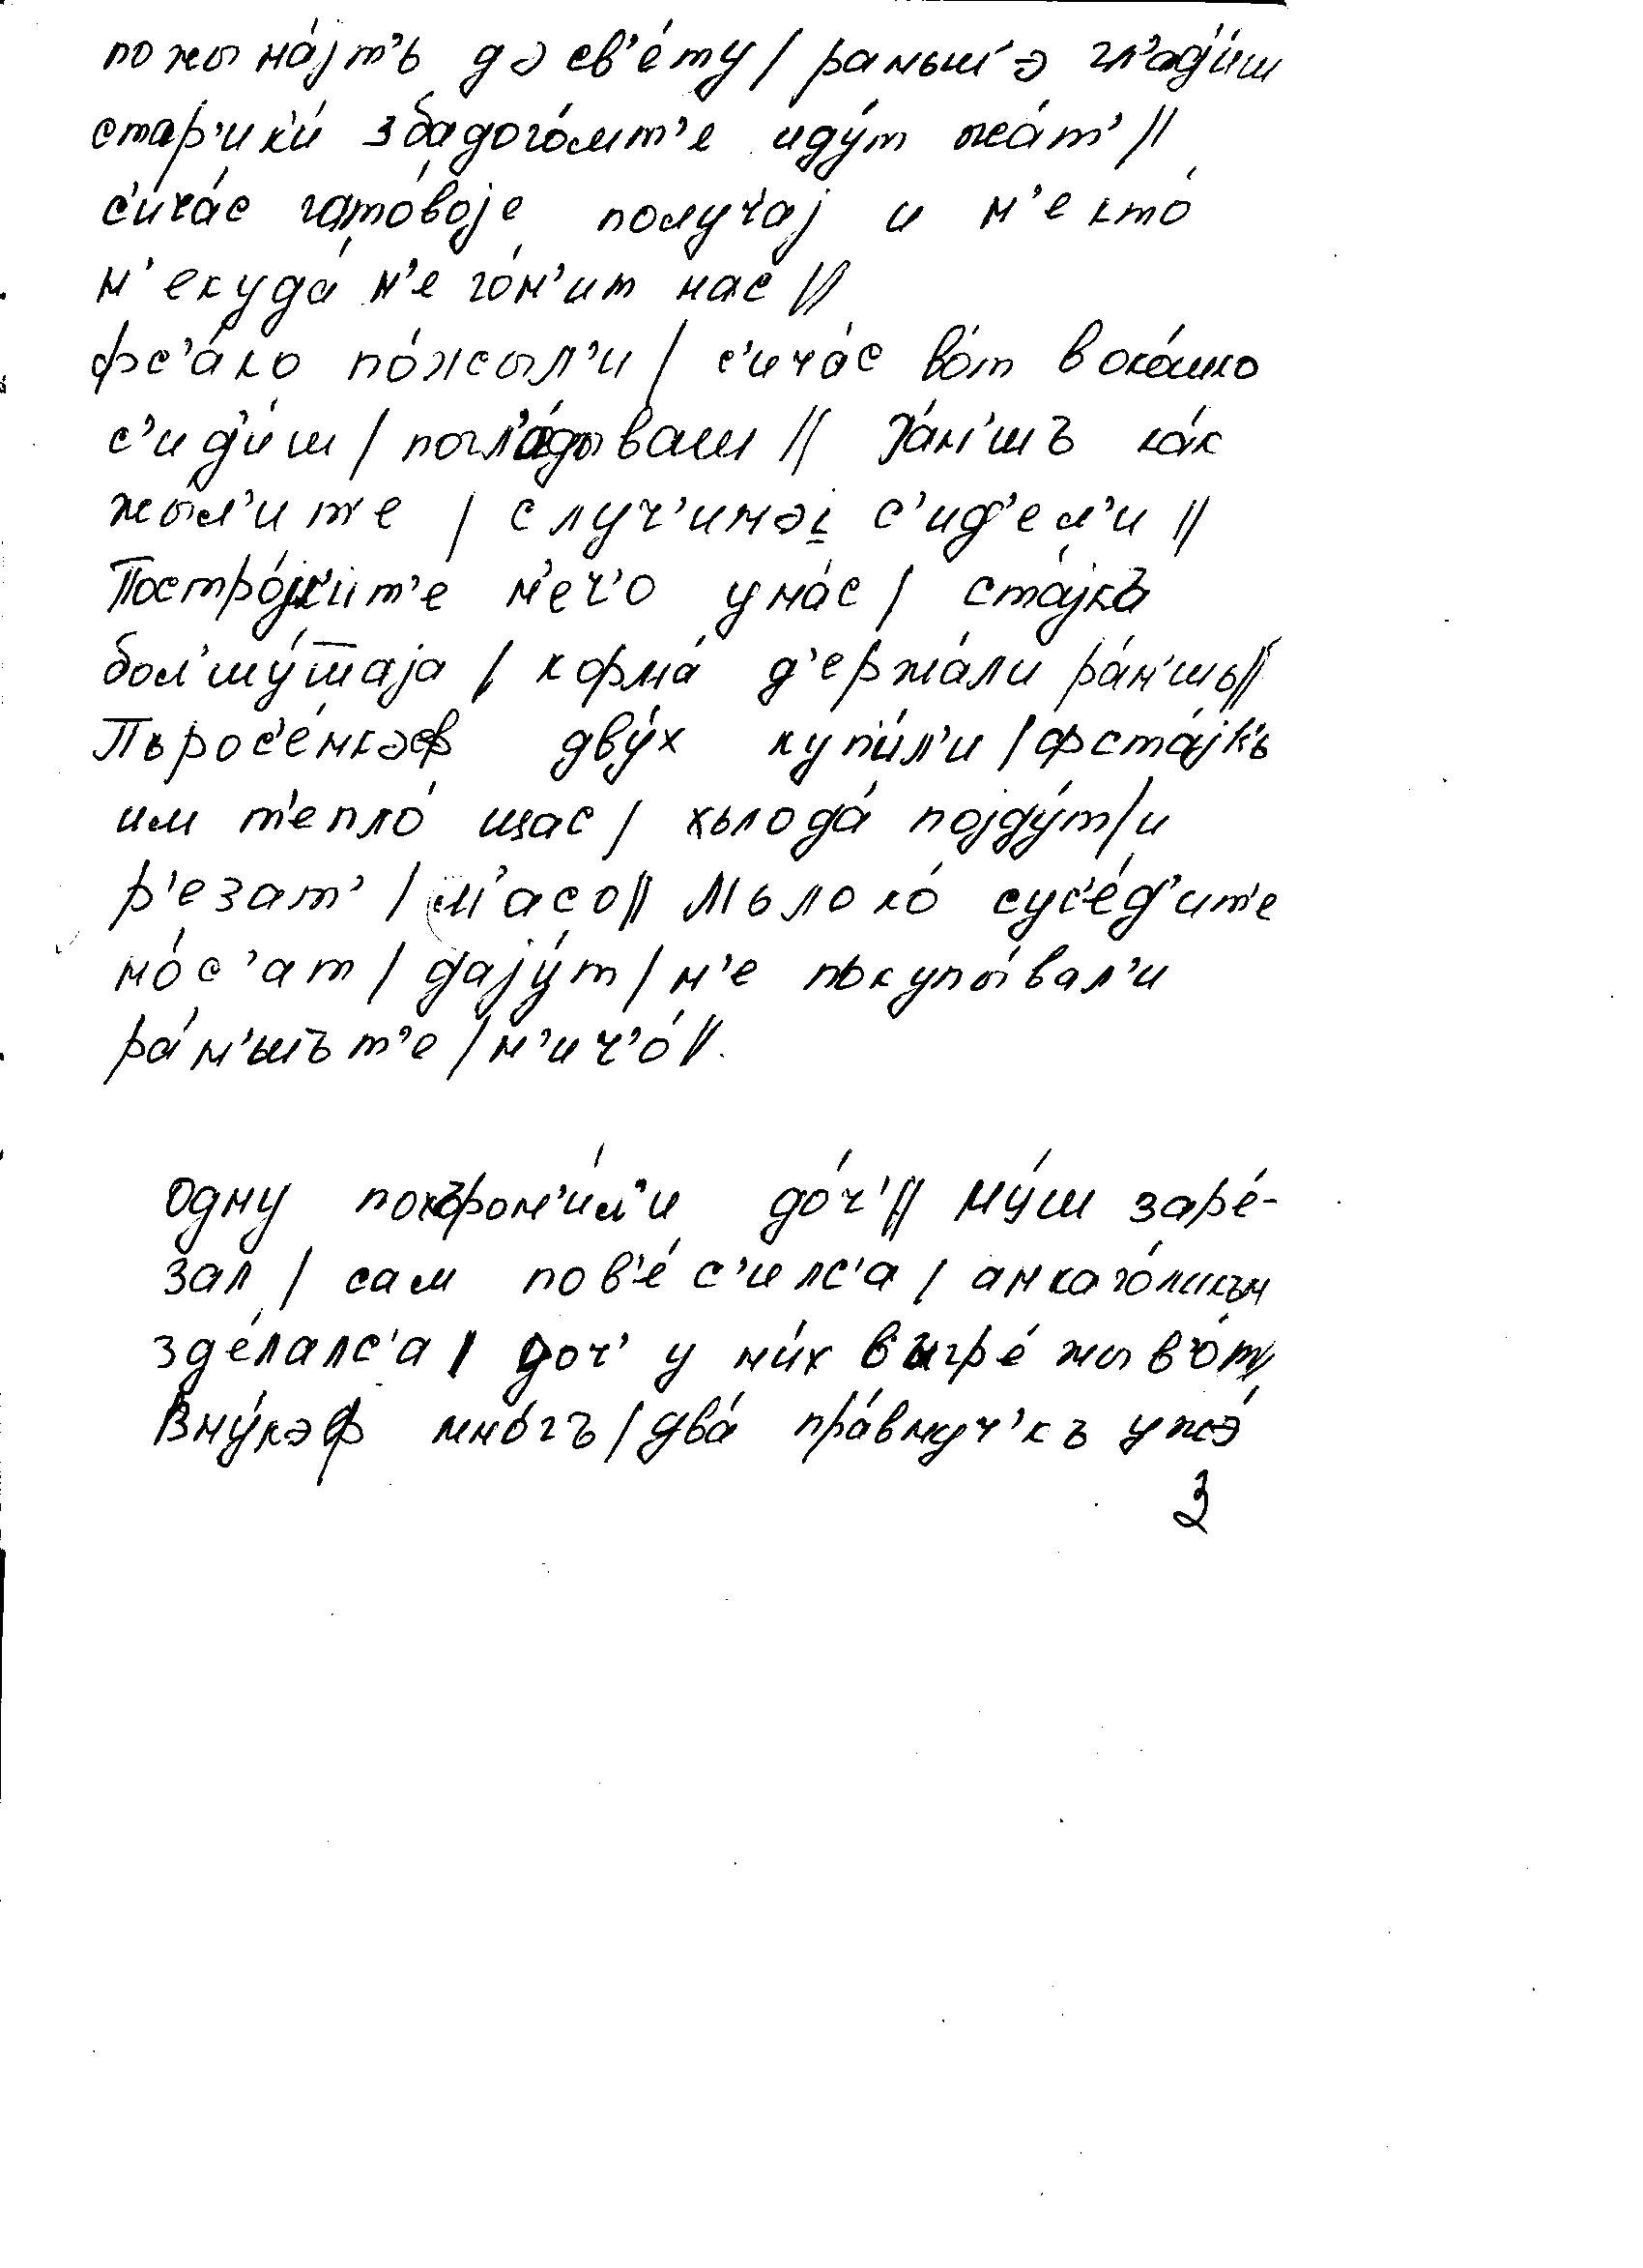 пожына́јт'ь дə св'е́ту / раньшə гл'ад'и́ш
стар'ик'и́ збадого́мт'е иду́т жа́т' //
с'ича́с гато́воје получа́ј и н'екто́
н'екуда́ н'е го́н'ит нас //
фс'а́ко по́жыл'и / с'ича́с во́т в ока́шко
с'ид'и́ш / погл'а́дываш // Ра́н'шъ ка́к
жы́л'ит'е / с луч'инəј с'ид'ел'и //
Постро́јк'ит'е н'еч'о у на́с / ста́јка
бол'шу́шшаја / корма́ д'ержа́ли ра́н'шъ //
Пърос'е́нкəф дву́х куп'и́л'и / фста́јк'ь
им т'епло́ щас / хълода́ појду́т / и
р'езат' / м'асо // Мълоко́ сус'е́д'ит'е
но́с'ат / дају́т / н'е пъкупы́вал'и
ра́н'шът'е / н'ич'о́ //.
Одну похърон'и́л'и до́ч' // Му́ш заре́-
зал / сам пов'е́с'илс'а / анкаго́ликъм
зде́лалс'а / доч' у ни́х в ыгре́ жыв'о́т //
Вну́кəф мно́гъ / два́ пра́внуч'къ ужэ́
3